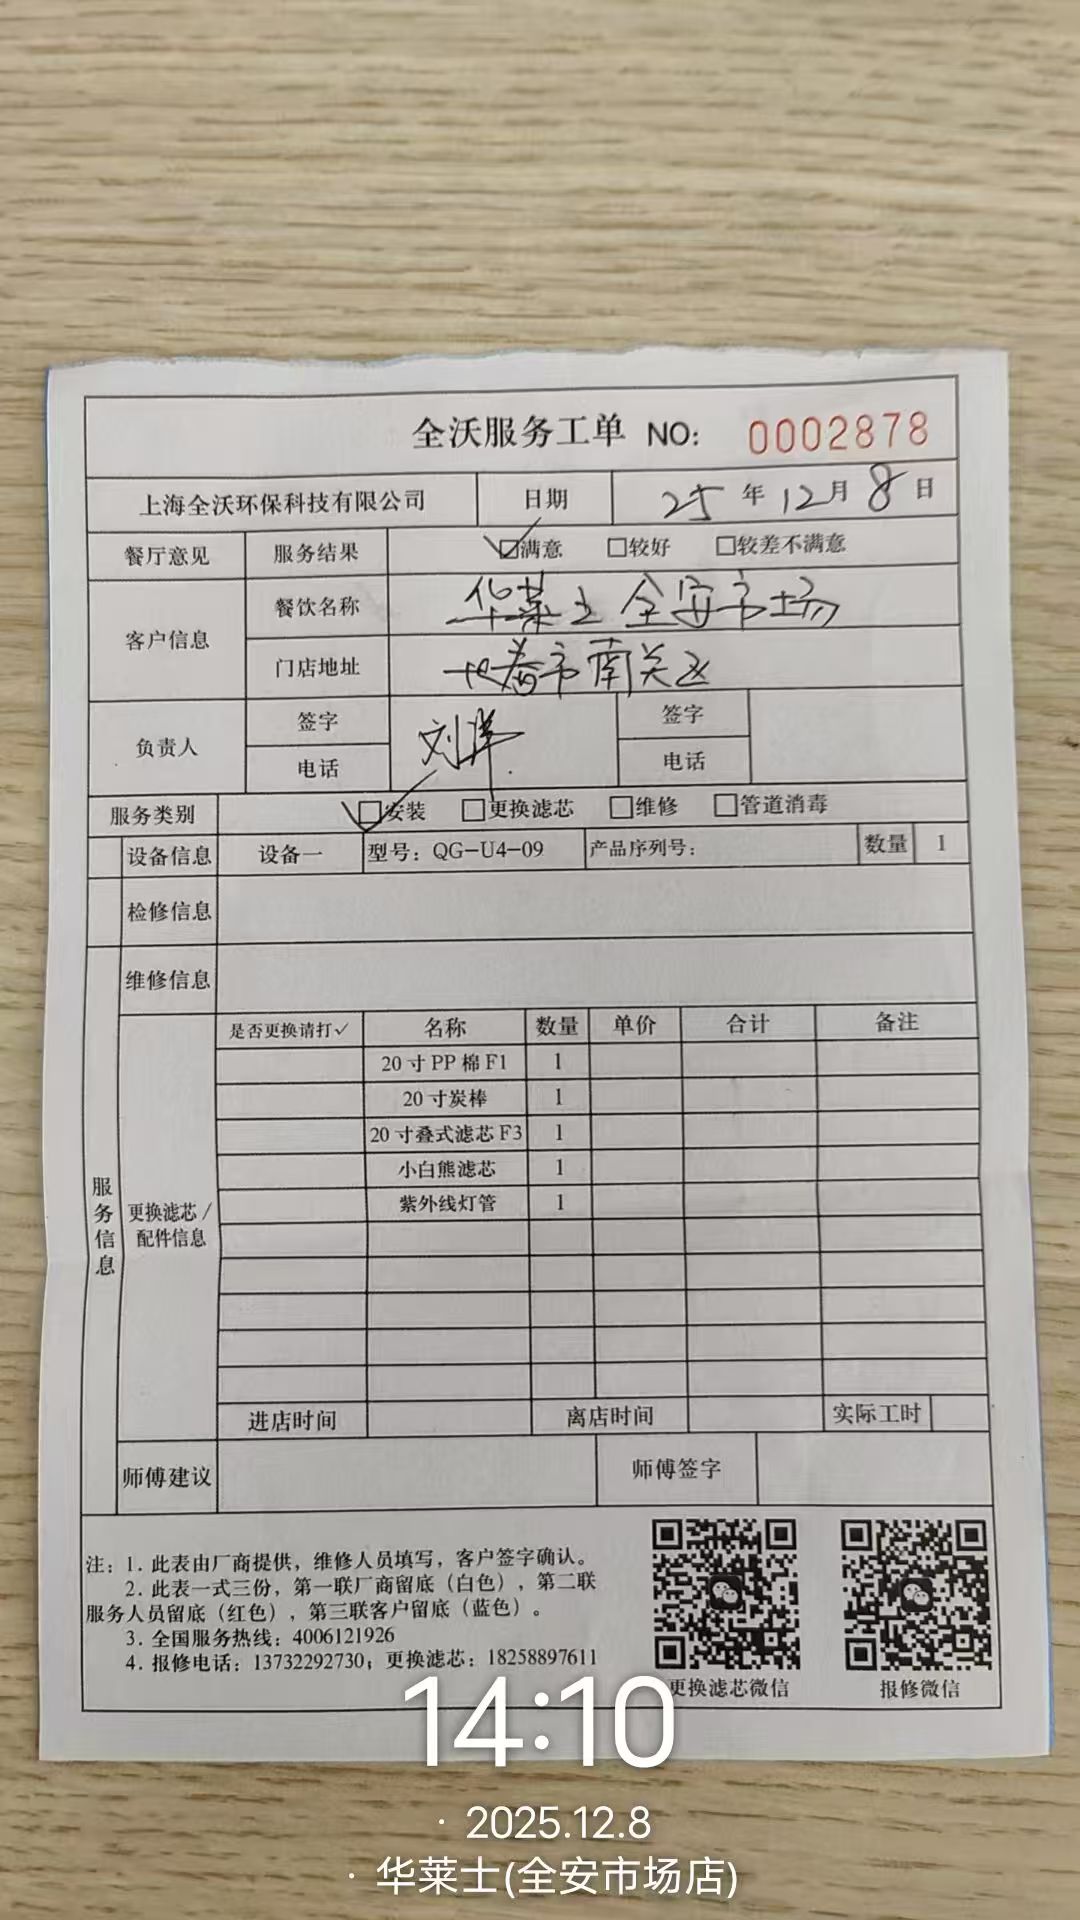 全沃服务工单 NO: 0002878
上海全沃环保科技有限公司 日期 25 年 12 月 8 日
餐厅意见 服务结果 ☑满意 □较好 □较差不满意
客户信息 餐饮名称 华莱士 全安市场
门店地址 长春市南关区
负责人 签字 刘洋 签字
电话 电话
服务类别 ☑安装 □更换滤芯 □维修 □管道消毒
设备信息 设备一 型号：QG-U4-09 产品序列号： 数量 1
检修信息
维修信息
服务信息
更换滤芯/
配件信息
是否更换请打✓ 名称 数量 单价 合计 备注
20寸PP棉F1 1
20寸炭棒 1
20寸叠式滤芯F3 1
小白熊滤芯 1
紫外线灯管 1
进店时间 离店时间 实际工时
师傅建议 师傅签字
注：1. 此表由厂商提供，维修人员填写，客户签字确认。
2. 此表一式三份，第一联厂商留底（白色），第二联
服务人员留底（红色），第三联客户留底（蓝色）。
3. 全国服务热线：4006121926
4. 报修电话：13732292730；更换滤芯：18258897611
更换滤芯微信 报修微信
14:10
· 2025.12.8
· 华莱士(全安市场店)